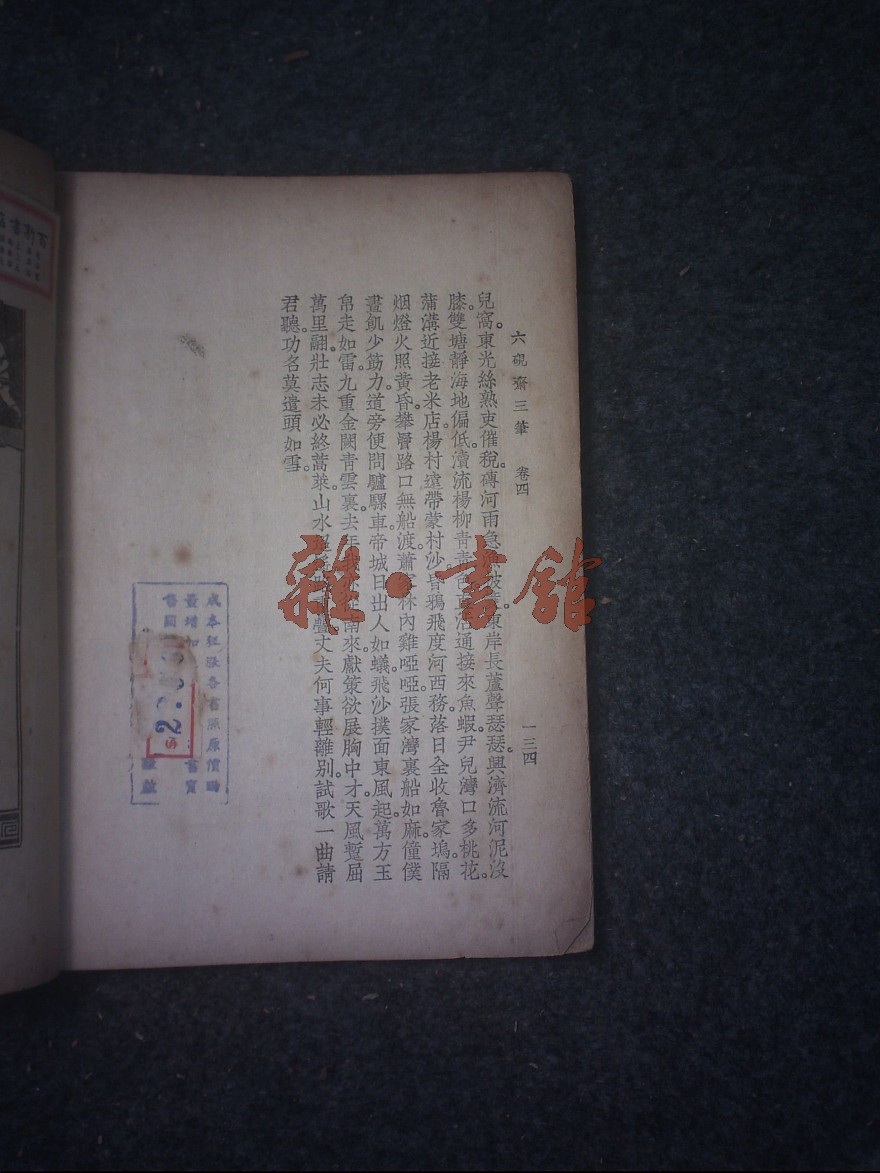 六硯齋三筆 卷四 一三四
兒窩。東光絲熟吏催稅。磚河雨急 東岸長蘆聲瑟瑟。興濟流河泥沒
膝。雙塘靜海地偏低。瀆流楊柳青青 直沽通接來魚蝦。尹兒灣口多桃花。
蒲溝近接老米店。楊村遠帶蒙村沙。昏鴉飛度河西務。落日全收魯家塢。隔
烟燈火照黃昏。攀罾路口無船渡。蕭 林內雞啞啞。張家灣裏船如麻。僮僕
晝飢少筋力。道旁便問驢騾車。帝城日出人如蟻。飛沙撲面東風起。萬方玉
帛走如雷。九重金闕青雲裏。去年 南來獻策欲展胸中才。天風蹔屈
萬里翮。壯志未必終蒿萊。山水 疊。丈夫何事輕離別。試歌一曲請
君聽。功名莫遣頭如雪。
雜·書館
成本 各書照原價